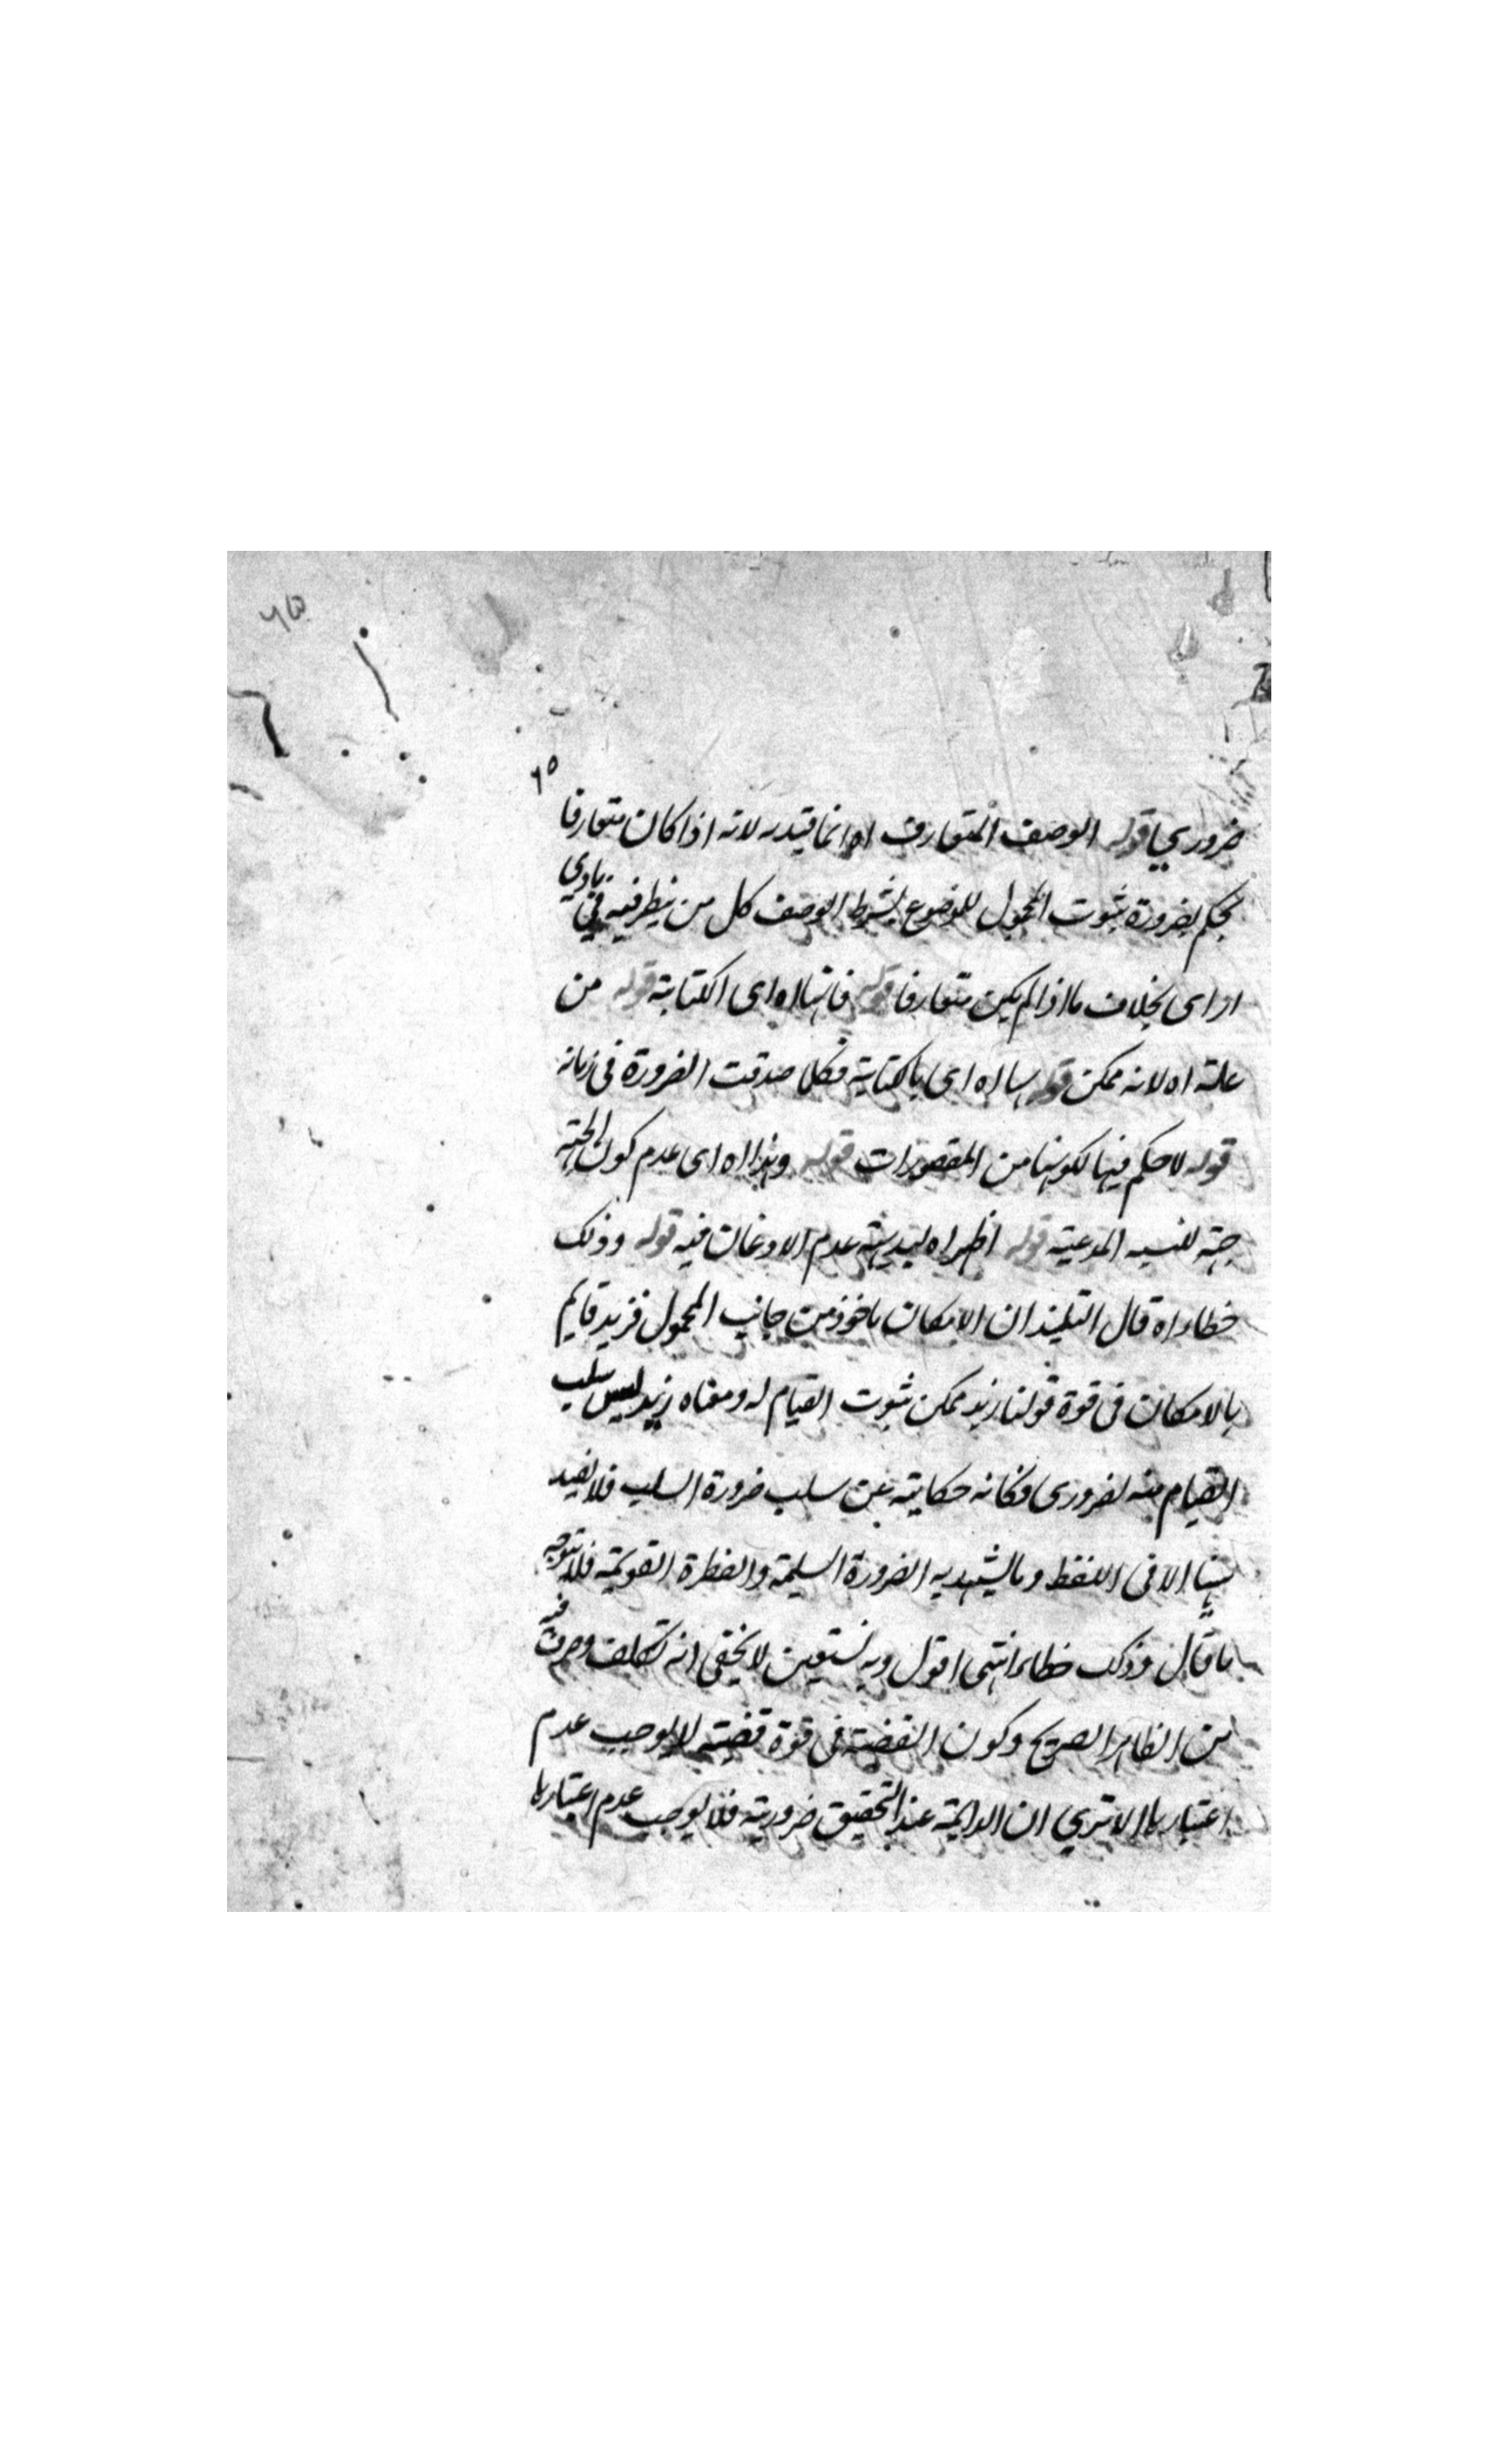 ٦٥
ضروريا قوله الوصف المتعارف اه انما قيد به لانه اذا كان متعارفا
يحكم بضرورة ثبوت المحمول للموضوع بشرط الوصف كل من ينظر فيه في بادي
الراى بخلاف ما اذا لم يكن متعارفا قوله فانها اه اى الكتابة قوله من
علته اه لانه ممكن قوله بها اه اى بالكتابة فكلا صدقت الضرورة فى زمانه
قوله لا حكم فيها لكونها من المقصورات قوله وهذا اه اى عدم كون الجهة
جهة للنسبه المدعية قوله اظهر اه لبديهته عدم الاذعان فيه قوله وذلك
خطاء اه قال التلميذ ان الامكان ماخوذ من جانب المحمول فزيد قايم
بالامكان فى قوة قولنا زيد ممكن ثبوت القيام له ومعناه زيد ليس سلب
القيام منه بضرورى فكانه حكاية عن سلب ضرورة السلب فلا تفيد
هنا الا فى اللفظ وما يشهد به الضرورة السليمة والفطرة القويمة فلا يتوجه
ما قال وذلك خطاء انتهى اقول وبه نستعين لا يخفى انه تكلف وصرف فيه
من الظاهر الصريح وكون القضية فى قوة قضية لا يوجب عدم
اعتبارها الا تري ان الدايمة عند التحقيق ضرورية فلا يوجب عدم اعتبارها